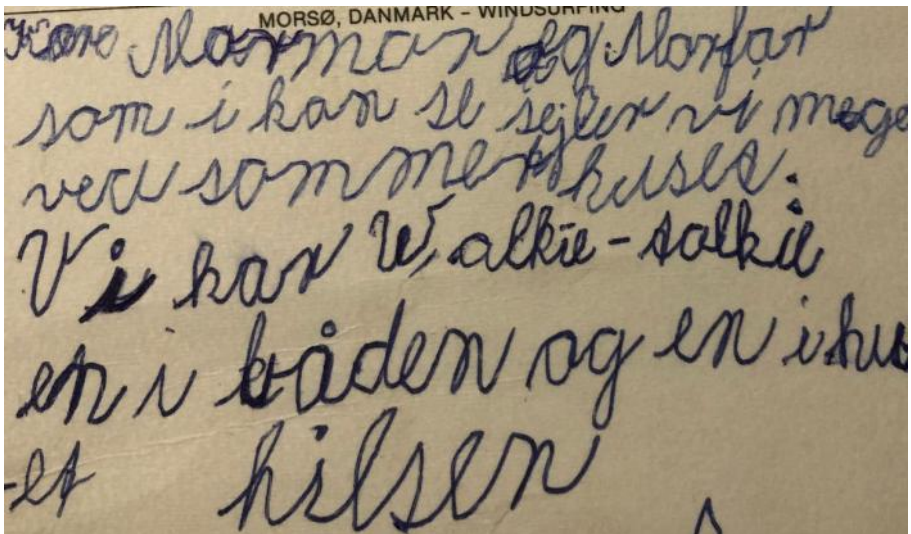 MORSØ, DANMARK – WINDSURFING
Kære Mormor og Morfar
som i kan se sejler vi mege
ved sommerhuset.
Vi har Walkie-talkie
en i båden og en i hus
-et hilsen